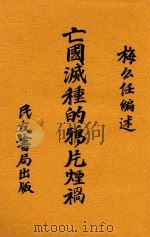 梅公任編述
亡國滅種的鴉片煙禍
民友書局出版
mtoou.info